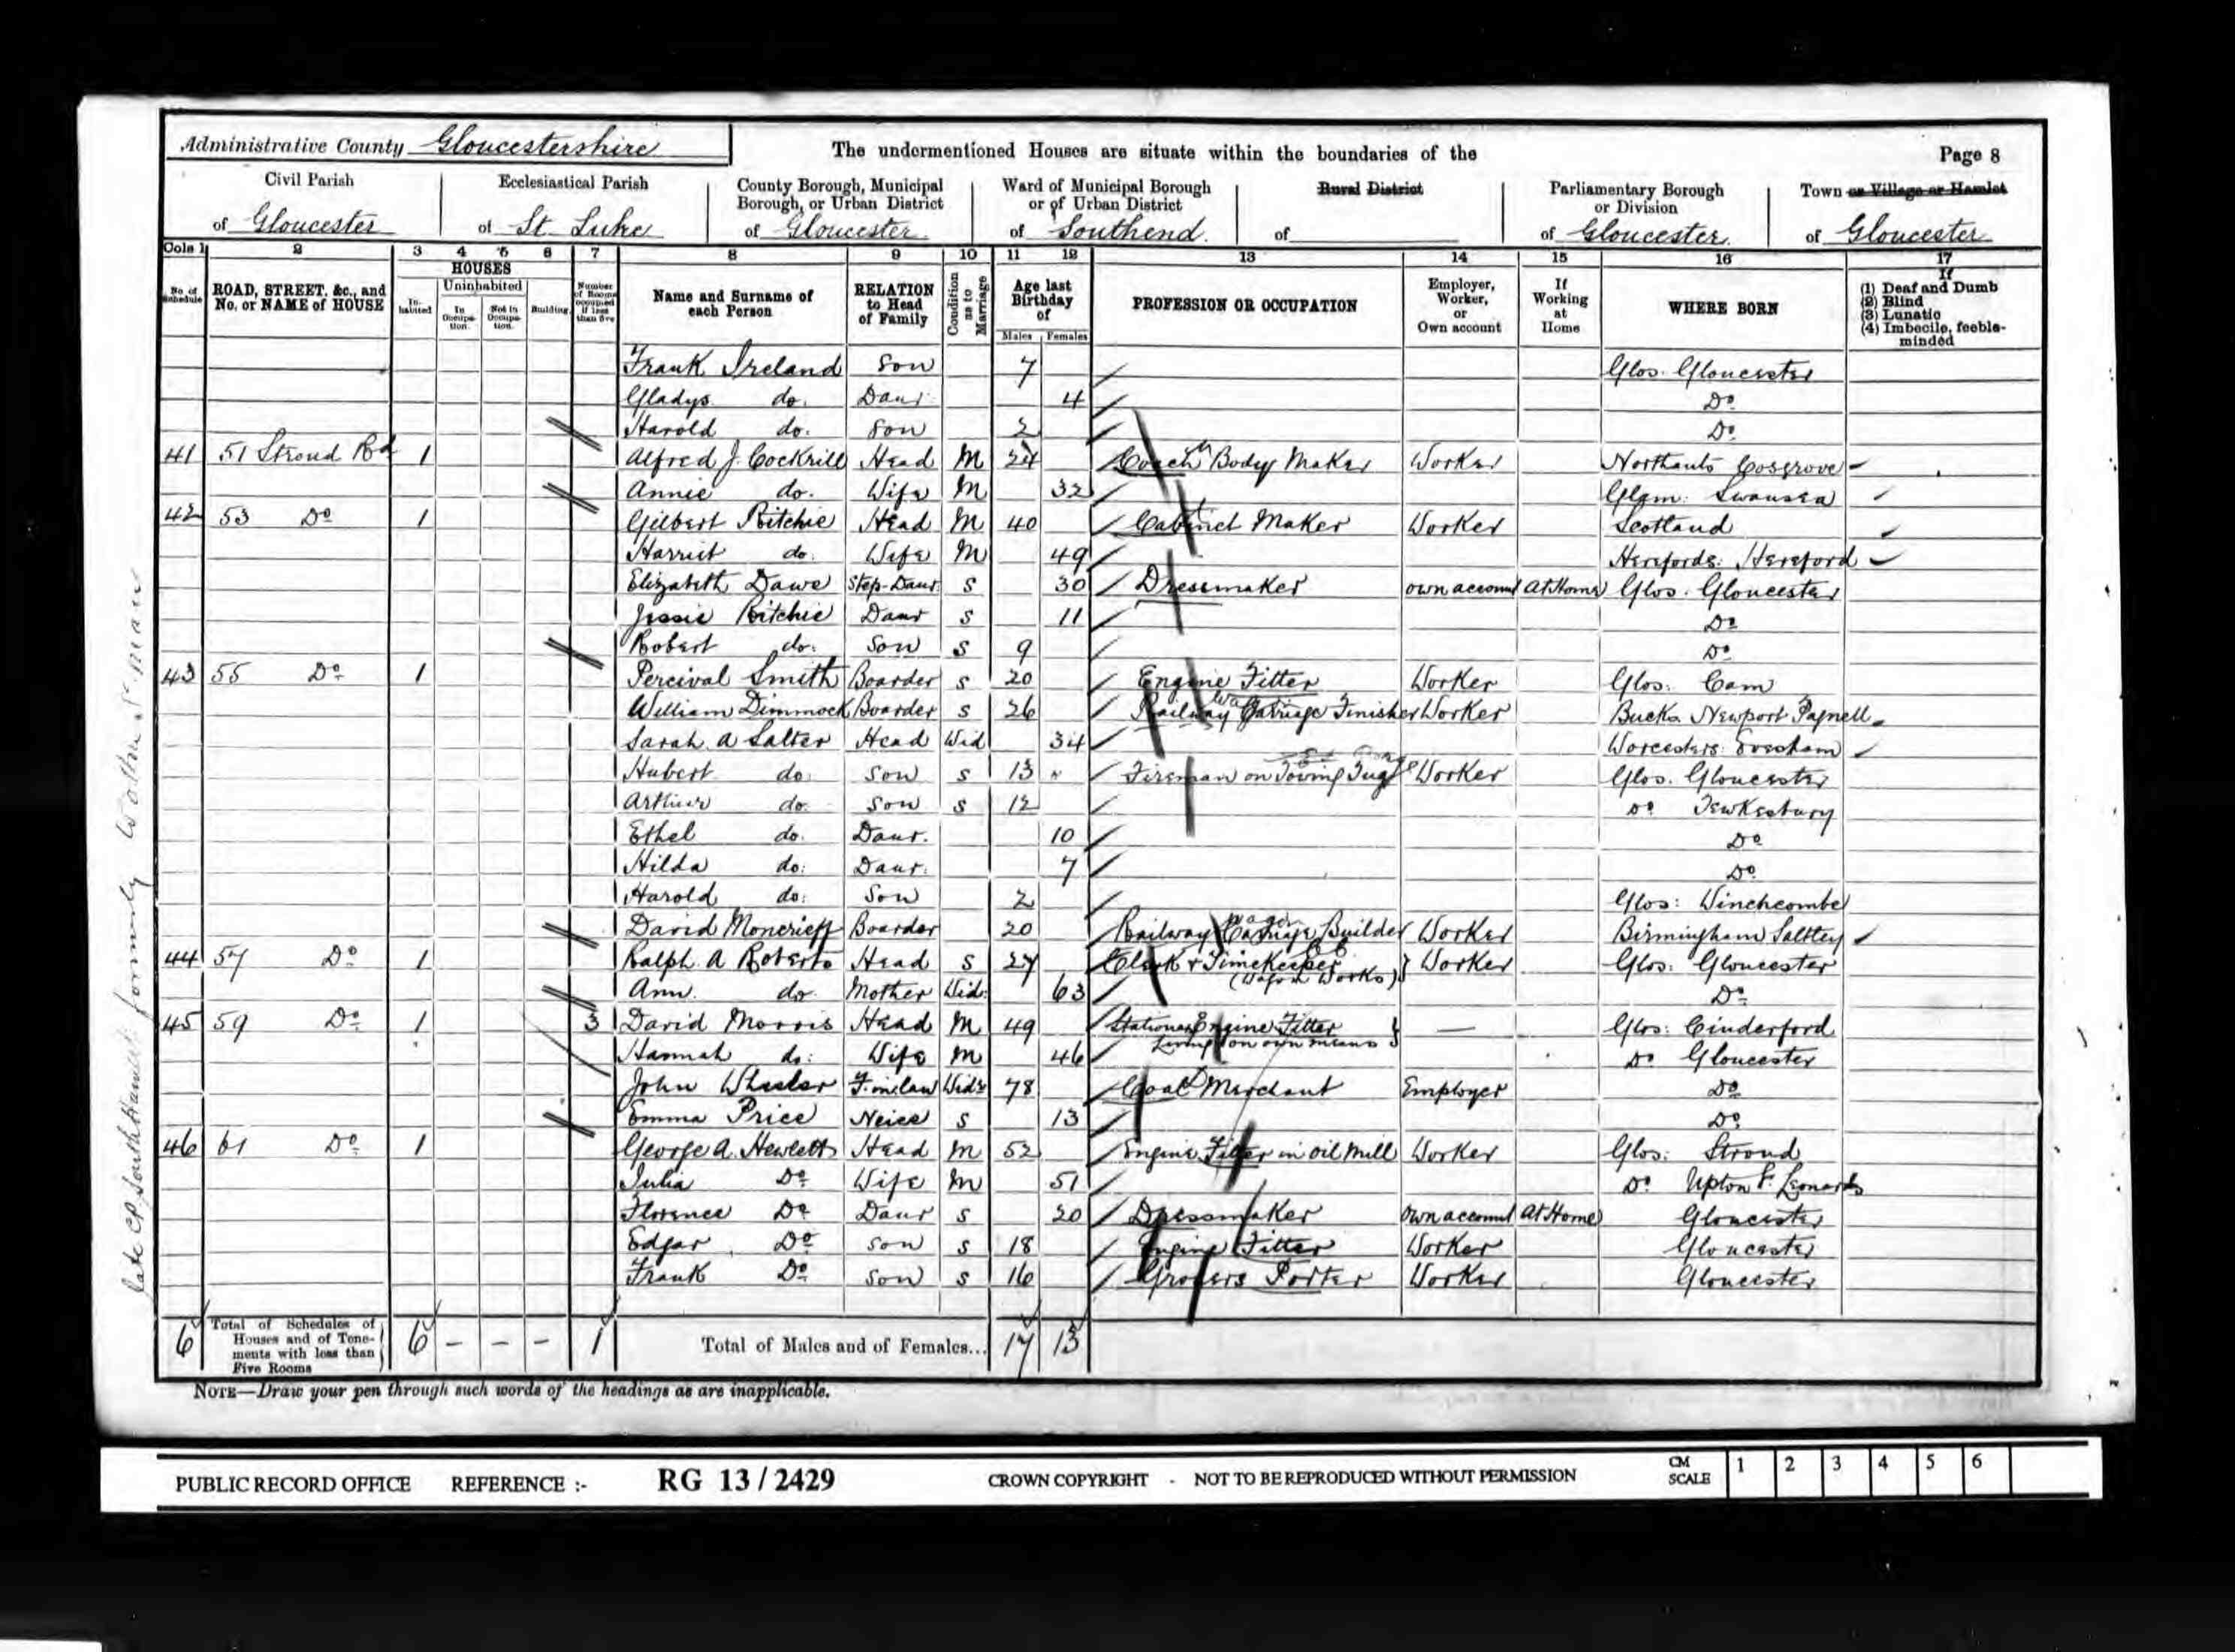 Administrative County Gloucestershire
The undermentioned Houses are situate within the boundaries of the
Page 8
Civil Parish of Gloucester
Ecclesiastical Parish of St. Luke
County Borough, Municipal Borough, or Urban District of Gloucester
Ward of Municipal Borough or of Urban District of Southend
Rural District of
Parliamentary Borough or Division of Gloucester
Town or Village or Hamlet of Gloucester
Cols 1 2 3 4 5 6 7 8 9 10 11 12 13 14 15 16 17
No. of Schedule
ROAD, STREET, &c., and No. or NAME of HOUSE
HOUSES
Inhabited
Uninhabited
In Occupation.
Not in Occupation.
Building.
Number of Rooms occupied if less than five
Name and Surname of each Person
RELATION to Head of Family
Condition as to Marriage
Age last Birthday of
Males Females
PROFESSION OR OCCUPATION
Employer, Worker, or Own account
If Working at Home
WHERE BORN
If (1) Deaf and Dumb (2) Blind (3) Lunatic (4) Imbecile, feeble-minded
Frank Ireland Son 7 Glos. Gloucester
Gladys do. Daur. 4 Do
Harold do. Son 2 Do
41 51 Stroud Rd 1 Alfred J. Cockrill Head M 24 Coach Body Maker Worker Northants Cosgrove
Annie do. Wife M 32 Glam: Swansea
42 53 Do 1 Gilbert Ritchie Head M 40 Cabinet Maker Worker Scotland
Harriet do. Wife M 49 Herefords: Hereford
Elizabeth Dawe Step-Daur. S 30 Dressmaker own account At Home Glos. Gloucester
Jessie Ritchie Daur S 11 Do
Robert do. Son S 9 Do
43 55 Do 1 Percival Smith Boarder S 20 Engine Fitter Worker Glos: Cam
William Dimmock Boarder S 26 Railway Carriage Finisher Worker Bucks Newport Pagnell
Sarah A Salter Head Wid 34 Worcesters: Evesham
Hubert do. Son S 13 Fireman on Towing Tug Worker Glos. Gloucester
Arthur do. Son S 12 Do Tewkesbury
Ethel do. Daur. 10 Do
Hilda do: Daur. 7 Do
Harold do: Son 2 Glos: Winchcombe
David Moncrieff Boarder 20 Railway Carriage Wagon Builder Worker Birmingham Saltley
44 57 Do 1 Ralph A Roberts Head S 27 Clerk & Timekeeper (Wagon Works) } Worker Glos: Gloucester
Ann do. Mother Wid. 63 Do
45 59 Do 1 3 David Morris Head M 49 Stationary Engine Fitter } — Glos: Cinderford
Living on own means
Hannah do: Wife M 46 Do Gloucester
John Wheeler F. in law Widr 78 Coal Merchant Employer Do
Emma Price Neice S 13 Do
46 61 Do 1 George A. Hewlett Head M 52 Engine Fitter in oil Mill Worker Glos: Stroud
Julia Do Wife M 51 Do Upton St. Leonards
Florence Do Daur S 20 Dressmaker Own account At Home Gloucester
Edgar Do Son S 18 Engine Fitter Worker Gloucester
Frank Do Son S 16 Grocers Porter Worker Gloucester
6 Total of Schedules of Houses and of Tenements with less than Five Rooms 6 – – – 1 Total of Males and of Females... 17 13
NOTE—Draw your pen through such words of the headings as are inapplicable.
PUBLIC RECORD OFFICE REFERENCE :- RG 13 / 2429 CROWN COPYRIGHT - NOT TO BE REPRODUCED WITHOUT PERMISSION
CM SCALE 1 2 3 4 5 6